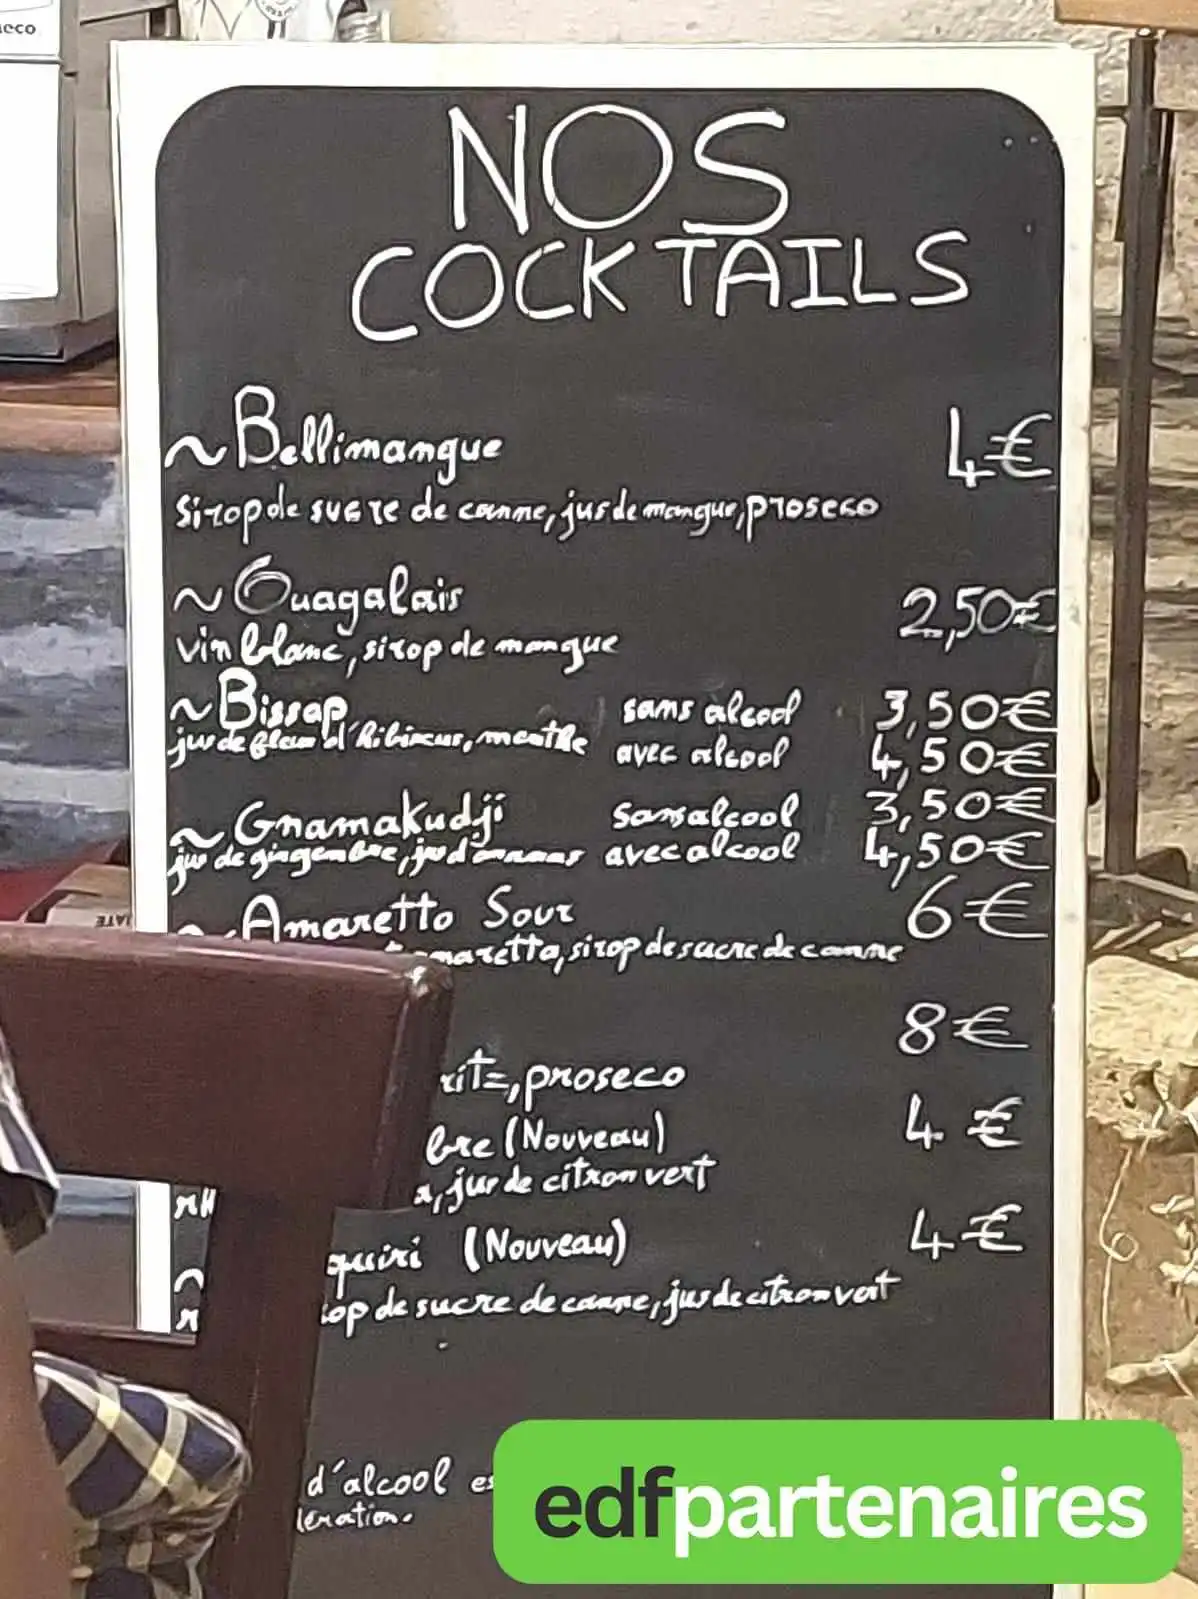 eco
NOS
COCKTAILS
~Bellimangue 4€
sirop de sucre de canne, jus de mangue, proseco
~Ouagalais 2,50€
vin blanc, sirop de mangue
~Bissap sans alcool 3,50€
jus de fleur d'hibiscus, menthe avec alcool 4,50€
~Gnamakudji sans alcool 3,50€
jus de gingembre, jus d'ananas avec alcool 4,50€
~Amaretto Sour 6€
maretto, sirop de sucre de canne
8€
ritz, proseco
bre (Nouveau) 4€
, jus de citron vert
quiri (Nouveau) 4€
rop de sucre de canne, jus de citron vert
d'alcool es
ération.
edfpartenaires